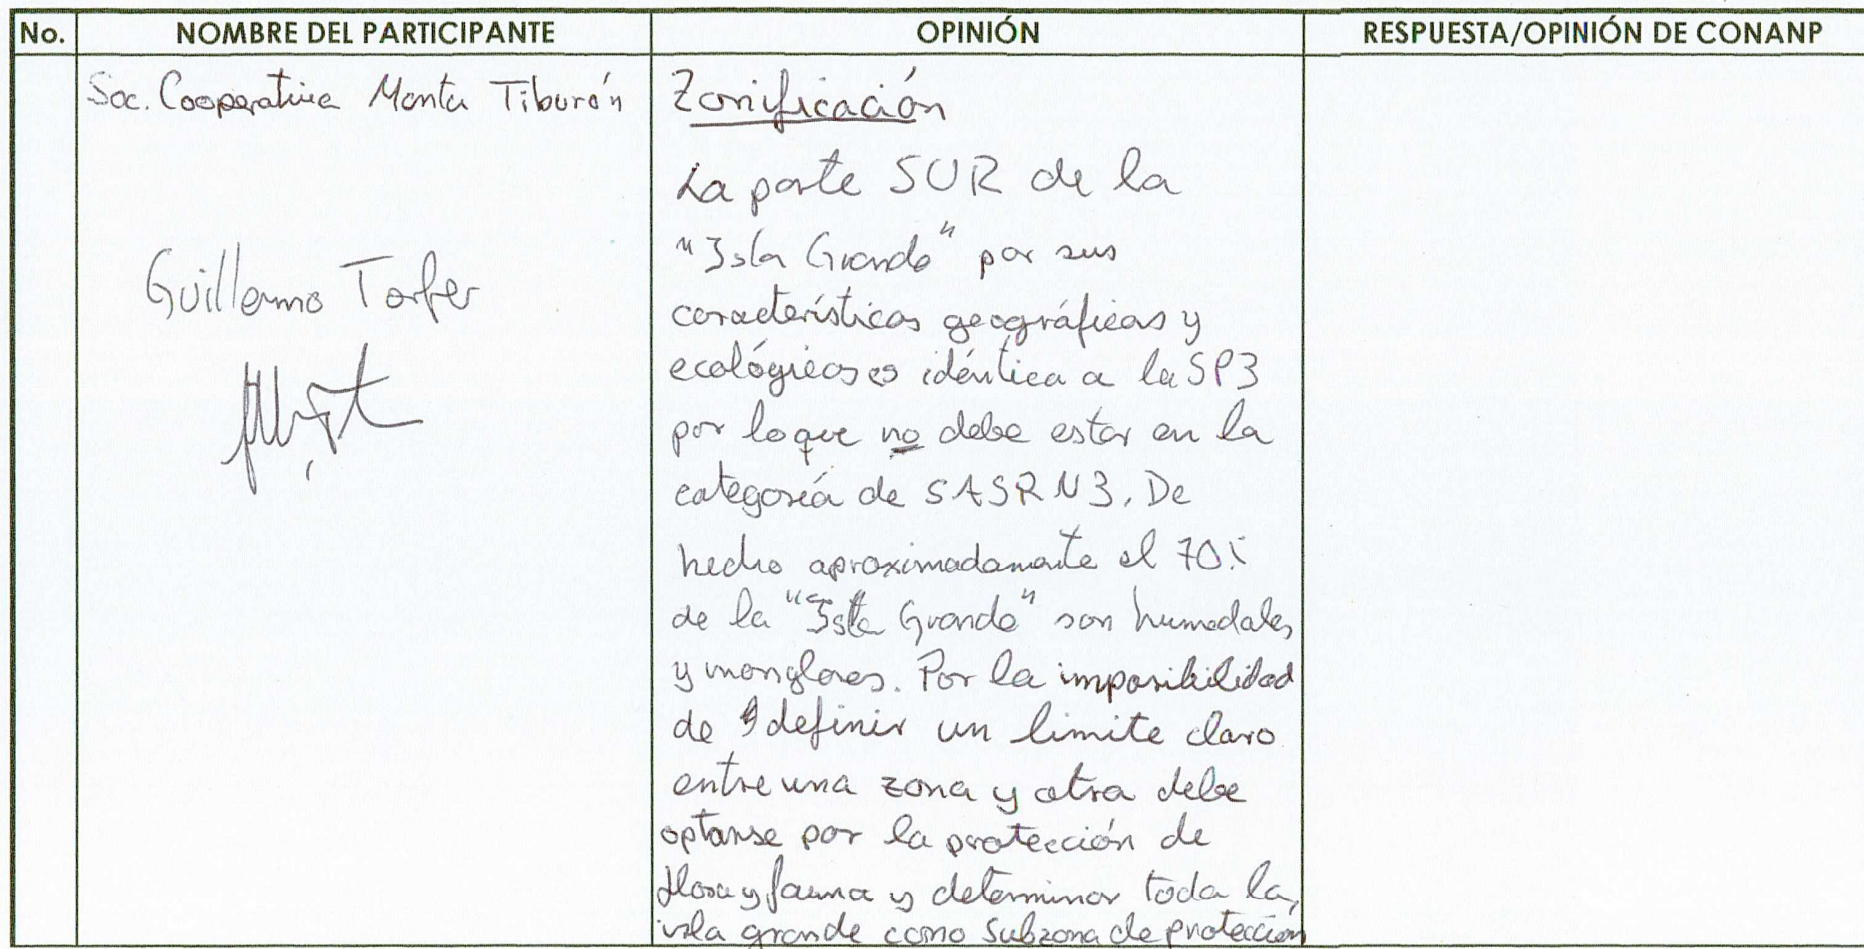 No. NOMBRE DEL PARTICIPANTE OPINIÓN RESPUESTA/OPINIÓN DE CONANP
Soc. Cooperativa Manta Tiburón
Guillermo
Zonificación
La parte SUR de la
"Isla Grande" por sus
características geográficas y
ecológicas es idéntica a la SP3
por lo que no debe estar en la
categoría de SASRN3. De
hecho aproximadamente el 70%
de la "Isla Grande" son humedales
y manglares. Por la imposibilidad
de definir un limite claro
entre una zona y otra debe
optarse por la protección de
flora y fauna y determinar toda la
isla grande como Subzona de protección